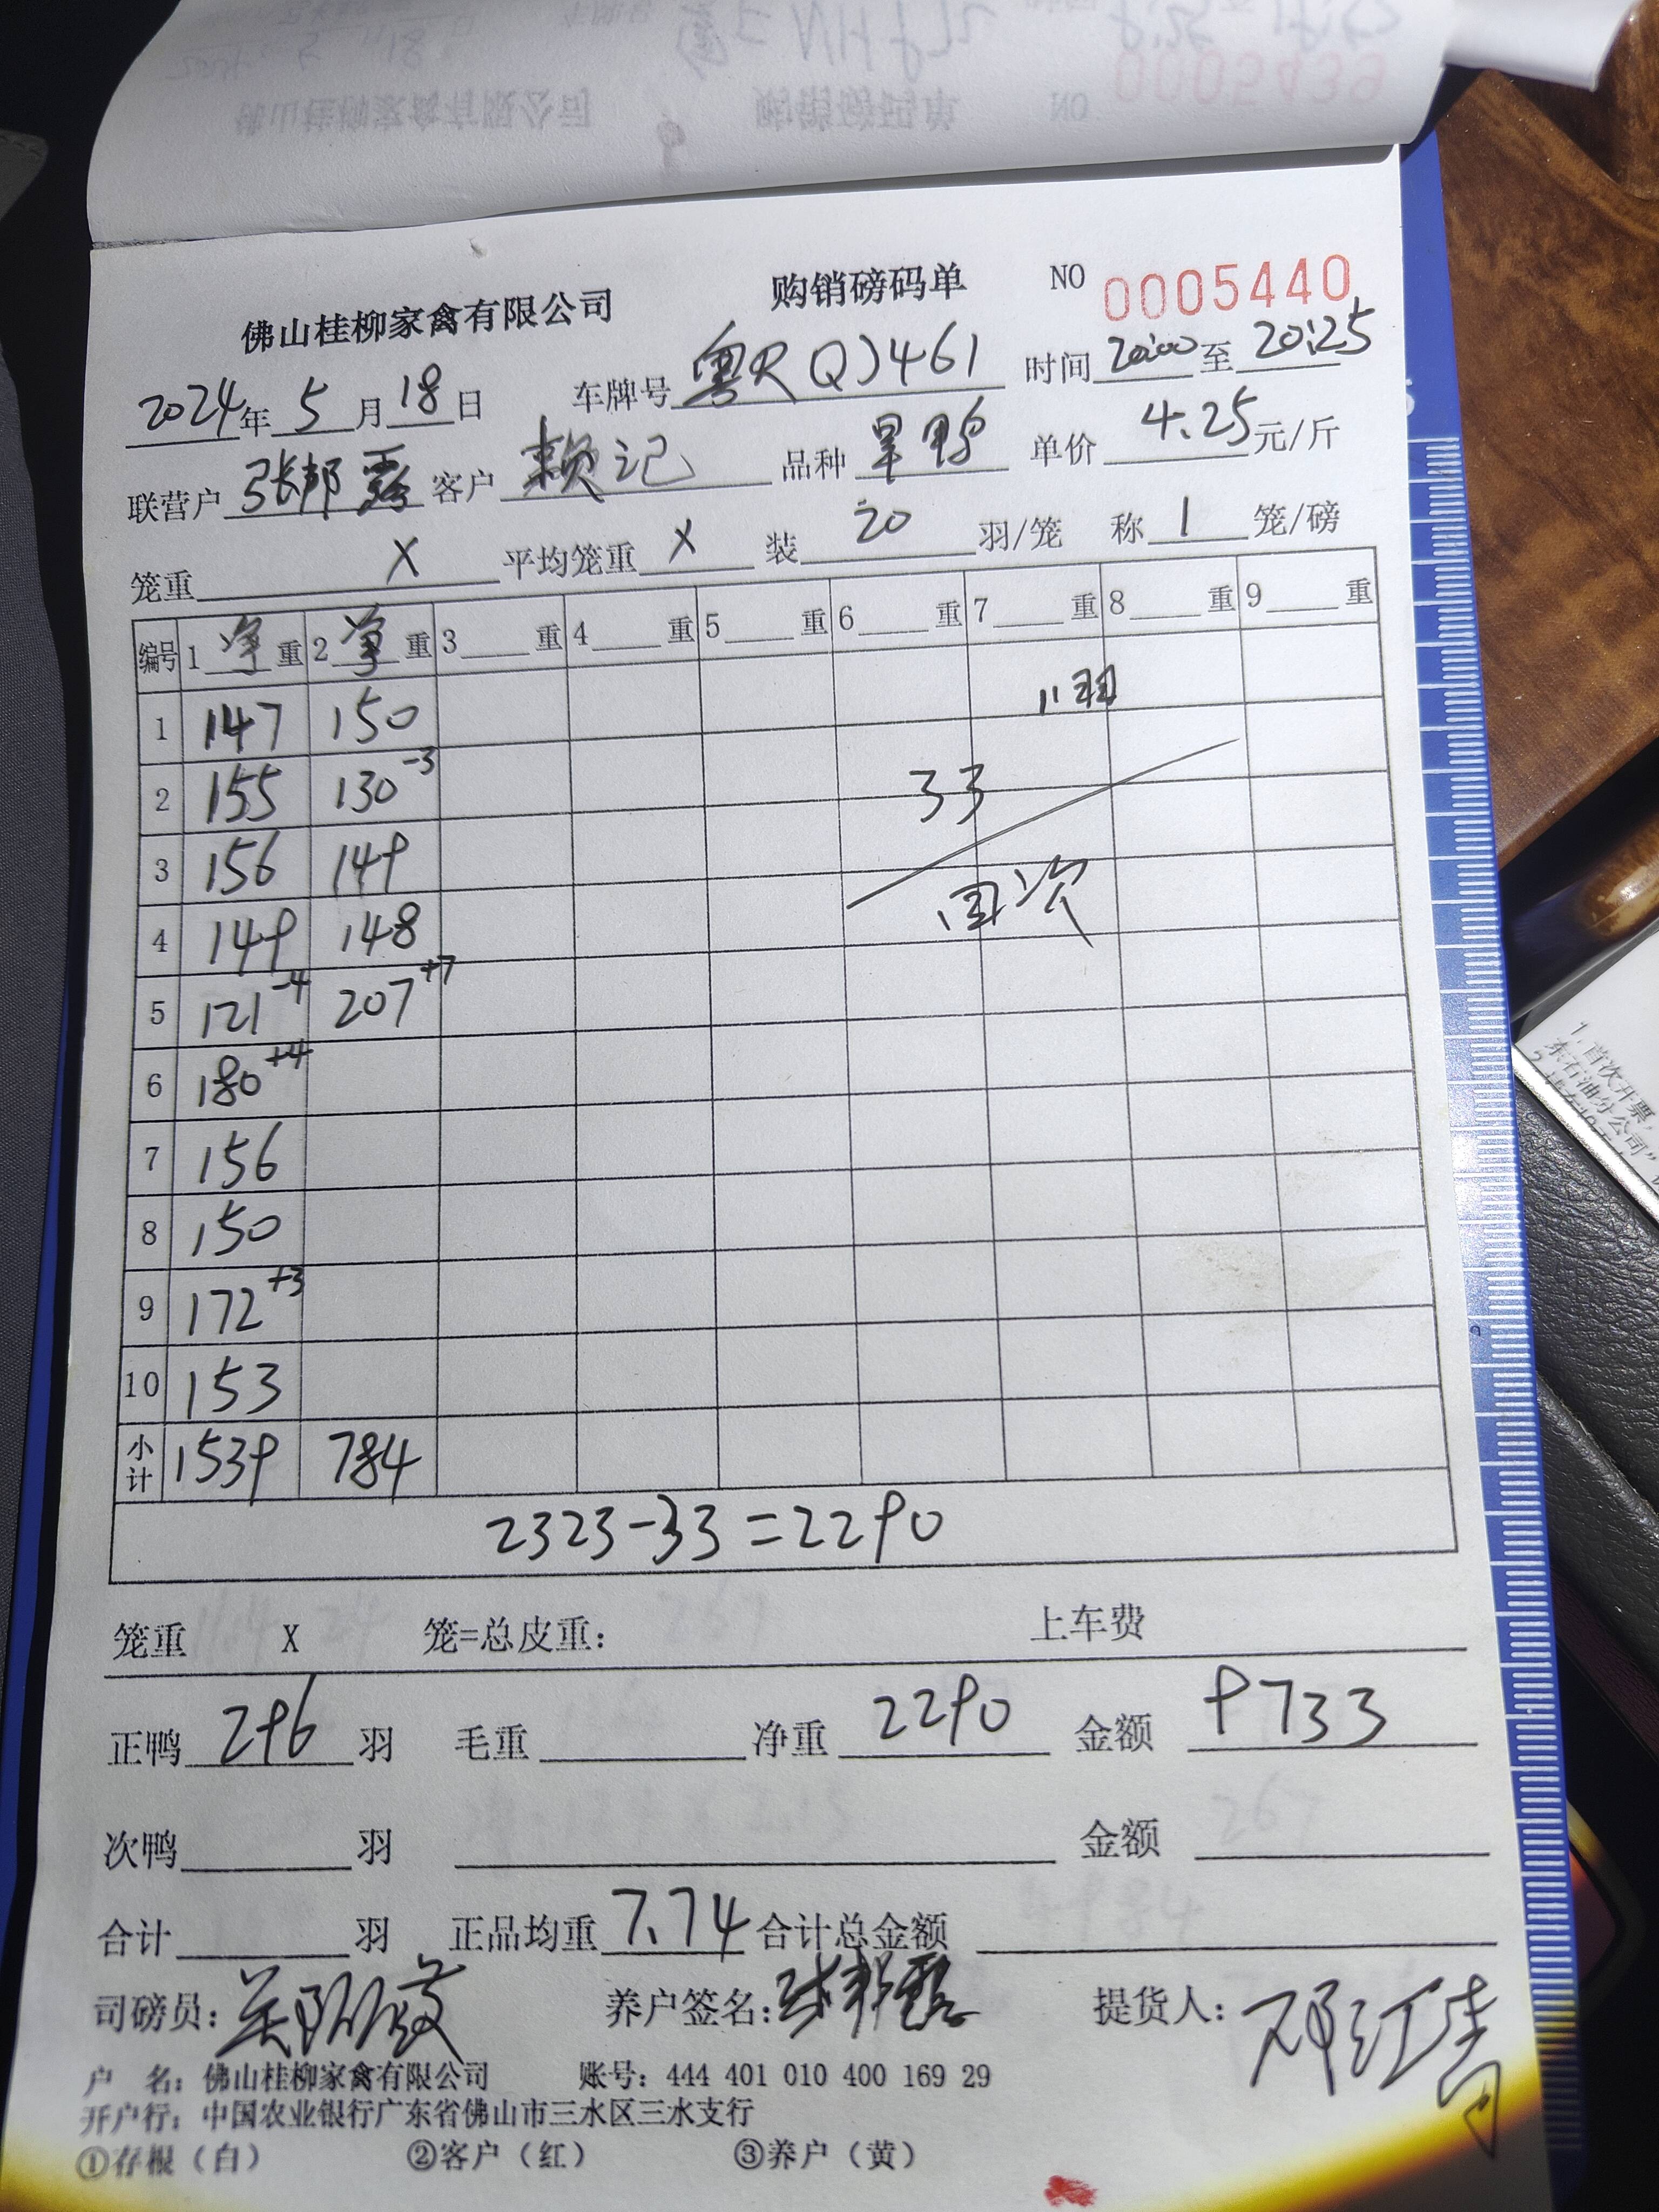 佛山桂柳家禽有限公司 购销磅码单 NO 0005440
2024年5月18日 车牌号 粤RQJ461 时间 20:00 至 20:25
联营户 张邦露 客户 赖记 品种 旱鸭 单价 4.25 元/斤
笼重 X 平均笼重 X 装 20 羽/笼 称 1 笼/磅
编号 1 净 重 2 净 重 3 重 4 重 5 重 6 重 7 重 8 重 9 重
1 147 150 11羽
2 155 130 -3 33
3 156 149 回次
4 149 148
5 121 -4 207 +7
6 180 +4
7 156
8 150
9 172 +3
10 153
小计 1539 784
2323-33=2290
笼重 X 笼=总皮重: 上车费
正鸭 296 羽 毛重 净重 2290 金额 9733
次鸭 羽 金额
合计 羽 正品均重 7.74 合计总金额
司磅员: 养户签名: 张邦露 提货人:
户 名: 佛山桂柳家禽有限公司 账号: 444 401 010 400 169 29
开户行: 中国农业银行广东省佛山市三水区三水支行
①存根(白) ②客户(红) ③养户(黄)
1、首次开票,
东石油分公司"